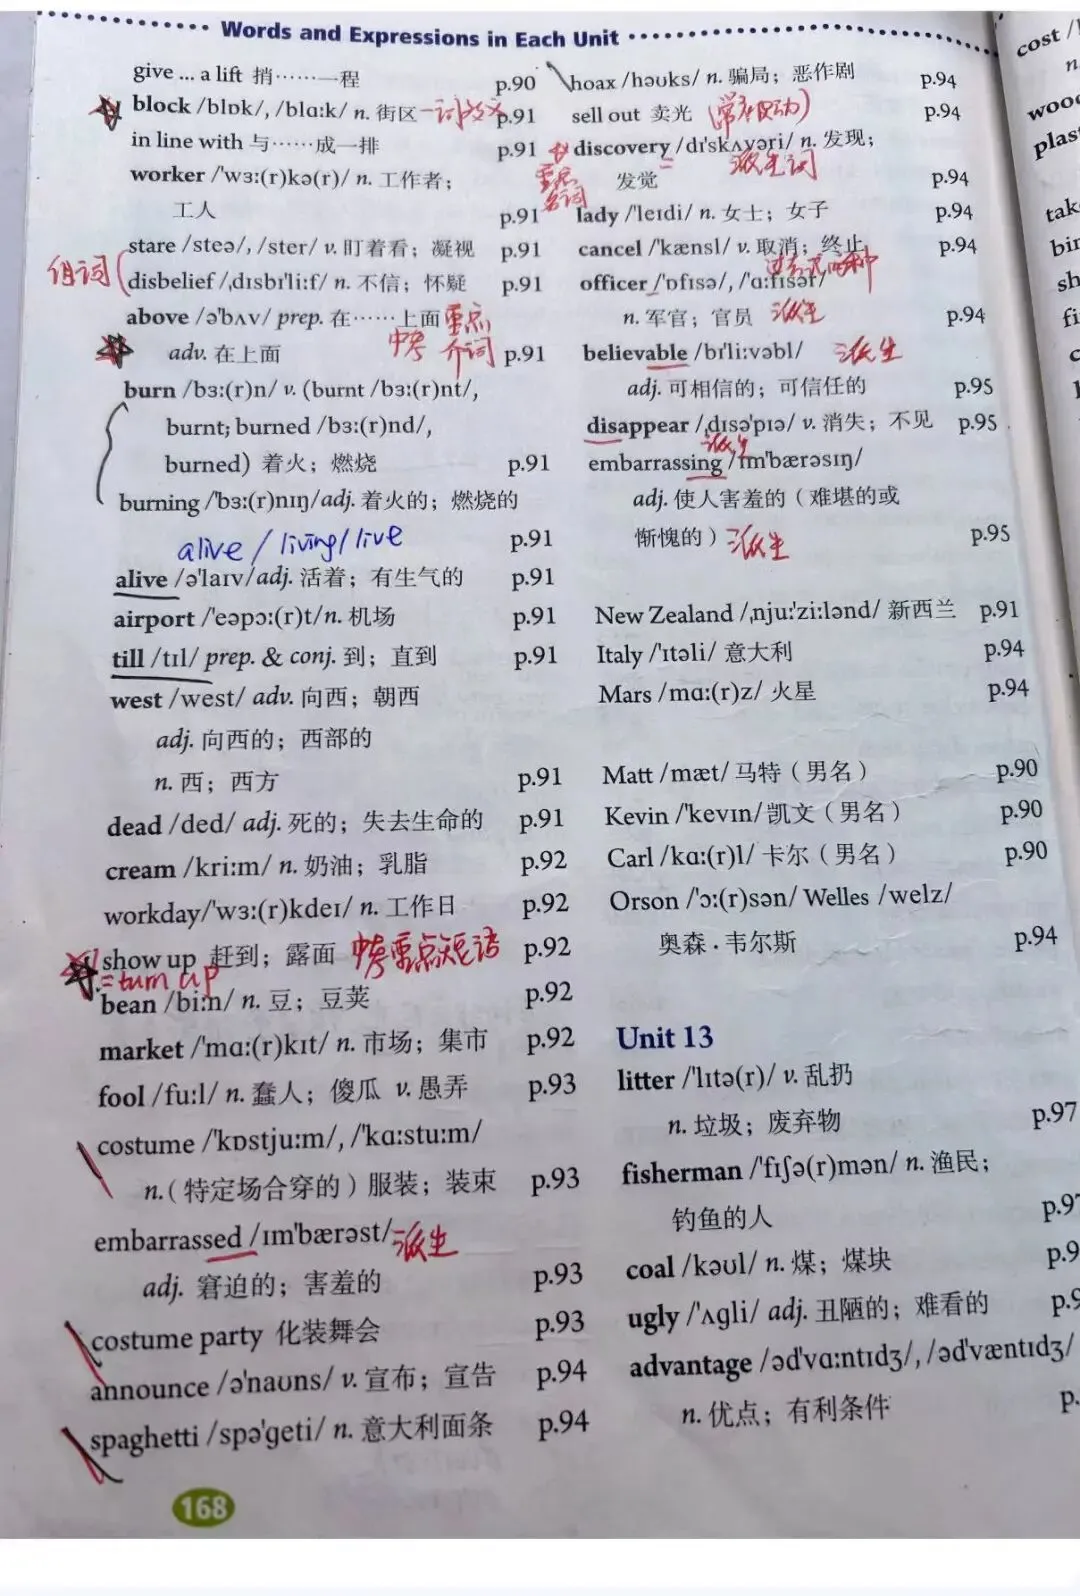 Words and Expressions in Each Unit
give ... a lift 捎……一程 p.90
block /blɒk/, /blɑ:k/ n. 街区 一词多义 p.91
in line with 与……成一排 p.91
worker /'wɜ:(r)kə(r)/ n. 工作者；
工人 p.91
stare /steə/, /ster/ v. 盯着看；凝视 p.91
组词
disbelief /ˌdɪsbɪ'li:f/ n. 不信；怀疑 p.91
above /ə'bʌv/ prep. 在……上面 重点
中考 介词
adv. 在上面 p.91
burn /bɜ:(r)n/ v. (burnt /bɜ:(r)nt/,
burnt; burned /bɜ:(r)nd/,
burned) 着火；燃烧 p.91
burning /'bɜ:(r)nɪŋ/ adj. 着火的；燃烧的
p.91
alive / living / live
alive /ə'laɪv/ adj. 活着；有生气的 p.91
airport /'eəpɔ:(r)t/ n. 机场 p.91
till /tɪl/ prep. & conj. 到；直到 p.91
west /west/ adv. 向西；朝西
adj. 向西的；西部的
n. 西；西方 p.91
dead /ded/ adj. 死的；失去生命的 p.91
cream /kri:m/ n. 奶油；乳脂 p.92
workday /'wɜ:(r)kdeɪ/ n. 工作日 p.92
show up 赶到；露面 中考重点短语 p.92
= turn up
bean /bi:n/ n. 豆；豆荚 p.92
market /'mɑ:(r)kɪt/ n. 市场；集市 p.92
fool /fu:l/ n. 蠢人；傻瓜 v. 愚弄 p.93
costume /'kɒstju:m/, /'kɑ:stu:m/
n.（特定场合穿的）服装；装束 p.93
embarrassed /ɪm'bærəst/ 派生
adj. 窘迫的；害羞的 p.93
costume party 化装舞会 p.93
announce /ə'naʊns/ v. 宣布；宣告 p.94
spaghetti /spə'geti/ n. 意大利面条 p.94
168
hoax /həʊks/ n. 骗局；恶作剧 p.94
sell out 卖光 p.94
discovery /dɪ'skʌvəri/ n. 发现；
重点
名词
发觉 派生词 p.94
lady /'leɪdi/ n. 女士；女子 p.94
cancel /'kænsl/ v. 取消；终止 p.94
officer /'ɒfɪsə/, /'ɑ:fɪsər/
n. 军官；官员 派生 p.94
believable /bɪ'li:vəbl/ 派生
adj. 可相信的；可信任的 p.95
disappear /ˌdɪsə'pɪə/ v. 消失；不见 p.95
派生
embarrassing /ɪm'bærəsɪŋ/
adj. 使人害羞的（难堪的或
惭愧的）派生 p.95
New Zealand /ˌnju:'zi:lənd/ 新西兰 p.91
Italy /'ɪtəli/ 意大利 p.94
Mars /mɑ:(r)z/ 火星 p.94
Matt /mæt/ 马特（男名） p.90
Kevin /'kevɪn/ 凯文（男名） p.90
Carl /kɑ:(r)l/ 卡尔（男名） p.90
Orson /'ɔ:(r)sən/ Welles /welz/
奥森·韦尔斯 p.94
Unit 13
litter /'lɪtə(r)/ v. 乱扔
n. 垃圾；废弃物 p.97
fisherman /'fɪʃə(r)mən/ n. 渔民；
钓鱼的人 p.9
coal /kəʊl/ n. 煤；煤块 p.9
ugly /'ʌgli/ adj. 丑陋的；难看的 p.9
advantage /əd'vɑ:ntɪdʒ/, /əd'væntɪdʒ/
n. 优点；有利条件 p.
cost /
n.
wood
plast
tak
bin
sh
fi
c